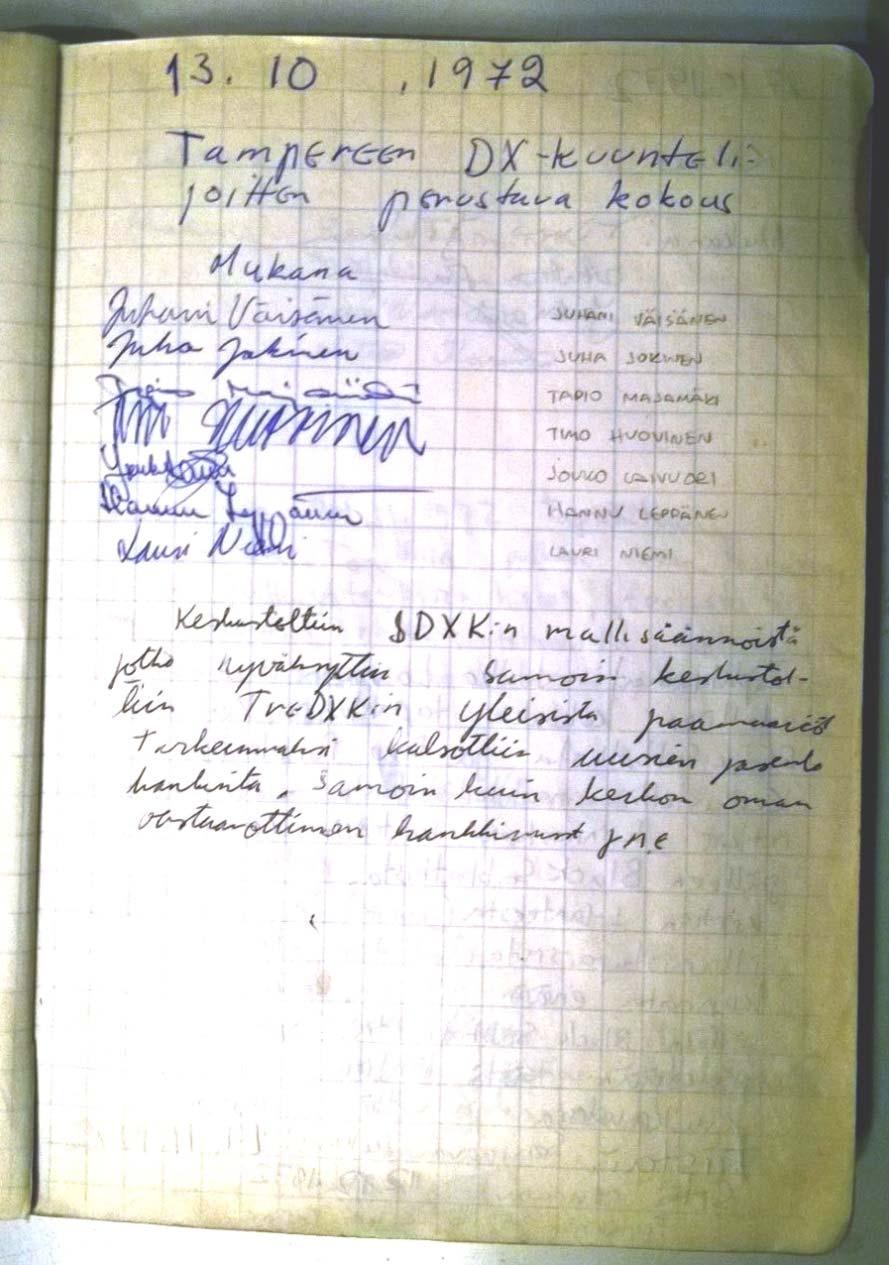 13. 10 .1972
Tampereen DX-kuunteli-
joitten perustava kokous
Mukana
Juhani Väisänen JUHANI VÄISÄNEN
Juha Jokinen JUHA JOKINEN
TAPIO MAJAMÄKI
Timo Huovinen TIMO HUOVINEN
JOUKO LAIVUORI
Hannu Leppänen HANNU LEPPÄNEN
Lauri Niemi LAURI NIEMI
Keskusteltiin SDXK:n mallisäännöistä
jotka hyväksyttiin samoin keskustel-
tiin TreDXK:n yleisistä päämääristä
Tärkeimmäksi katsottiin uusien jäsenten
hankinta, samoin kuin kerhon oman
vastaanottimen hankkiminen j.n.e